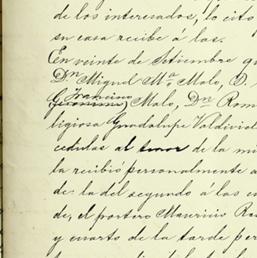 de los interesados, lo cito
su casa recibe á las.
En veinte de Setiembre
Dn Miguel Ma. Malo, D.
Francisco
G Malo, Dn Rom
ligiosa Guadalupe Valdivie
cedulas al tenor de la mi
la recibió personalmente a
de la del segundo á las
de, el portero Mauricio
y cuarto de la tarde per